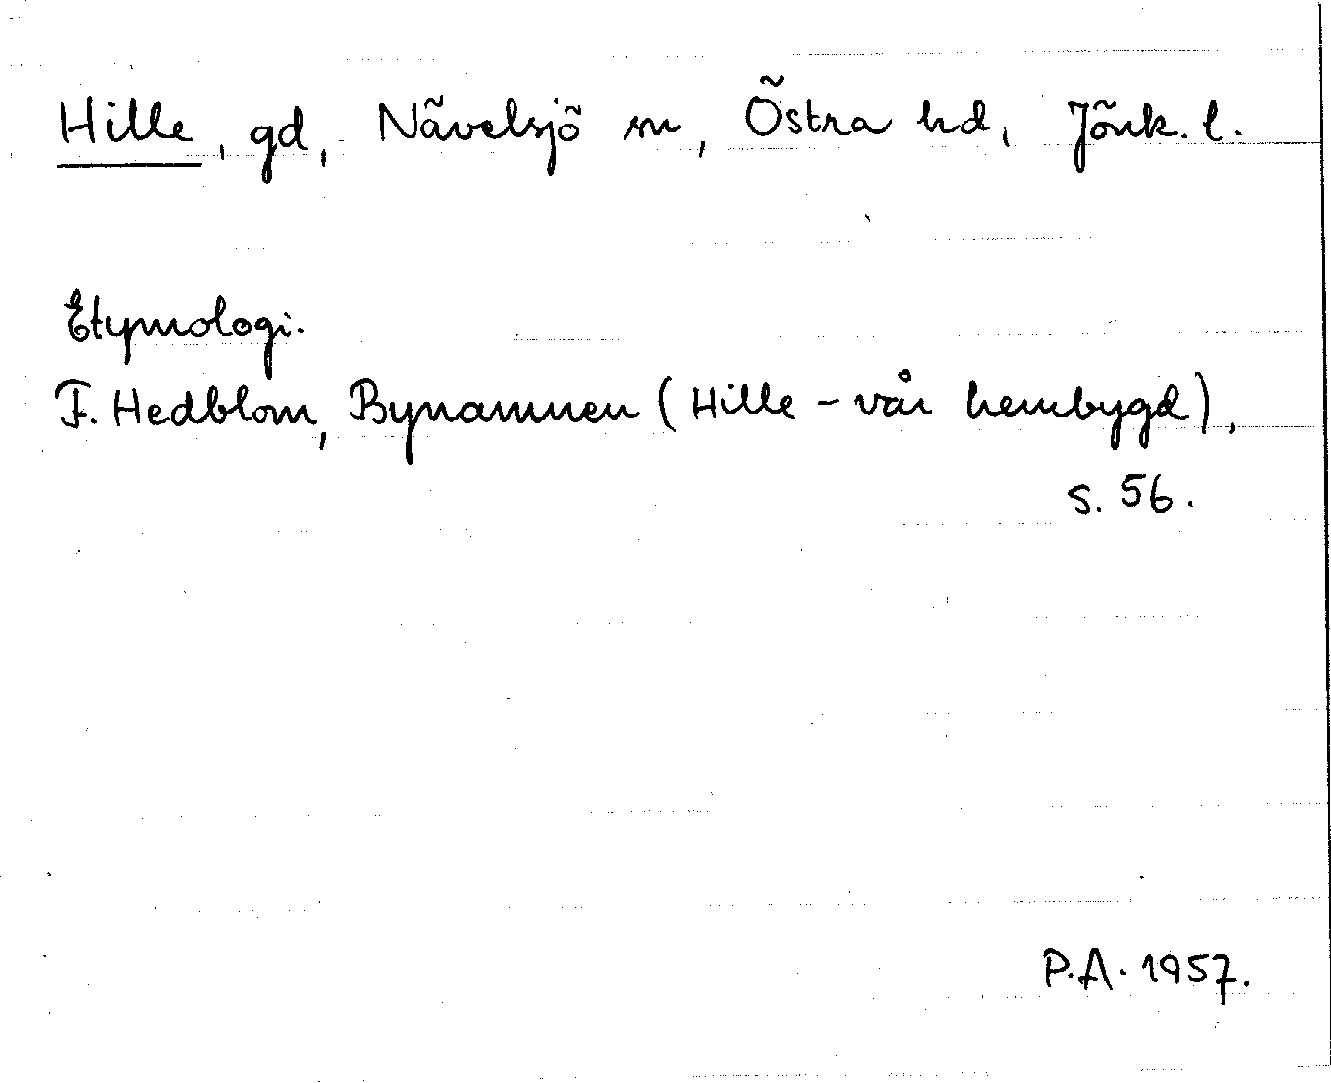 Hille, gd, Nävelsjö sn, Östra hd, Jönk. l.
Etymologi.
F. Hedblom, Bynamnen (Hille - vår hembygd),
s. 56.
P.A. 1957.